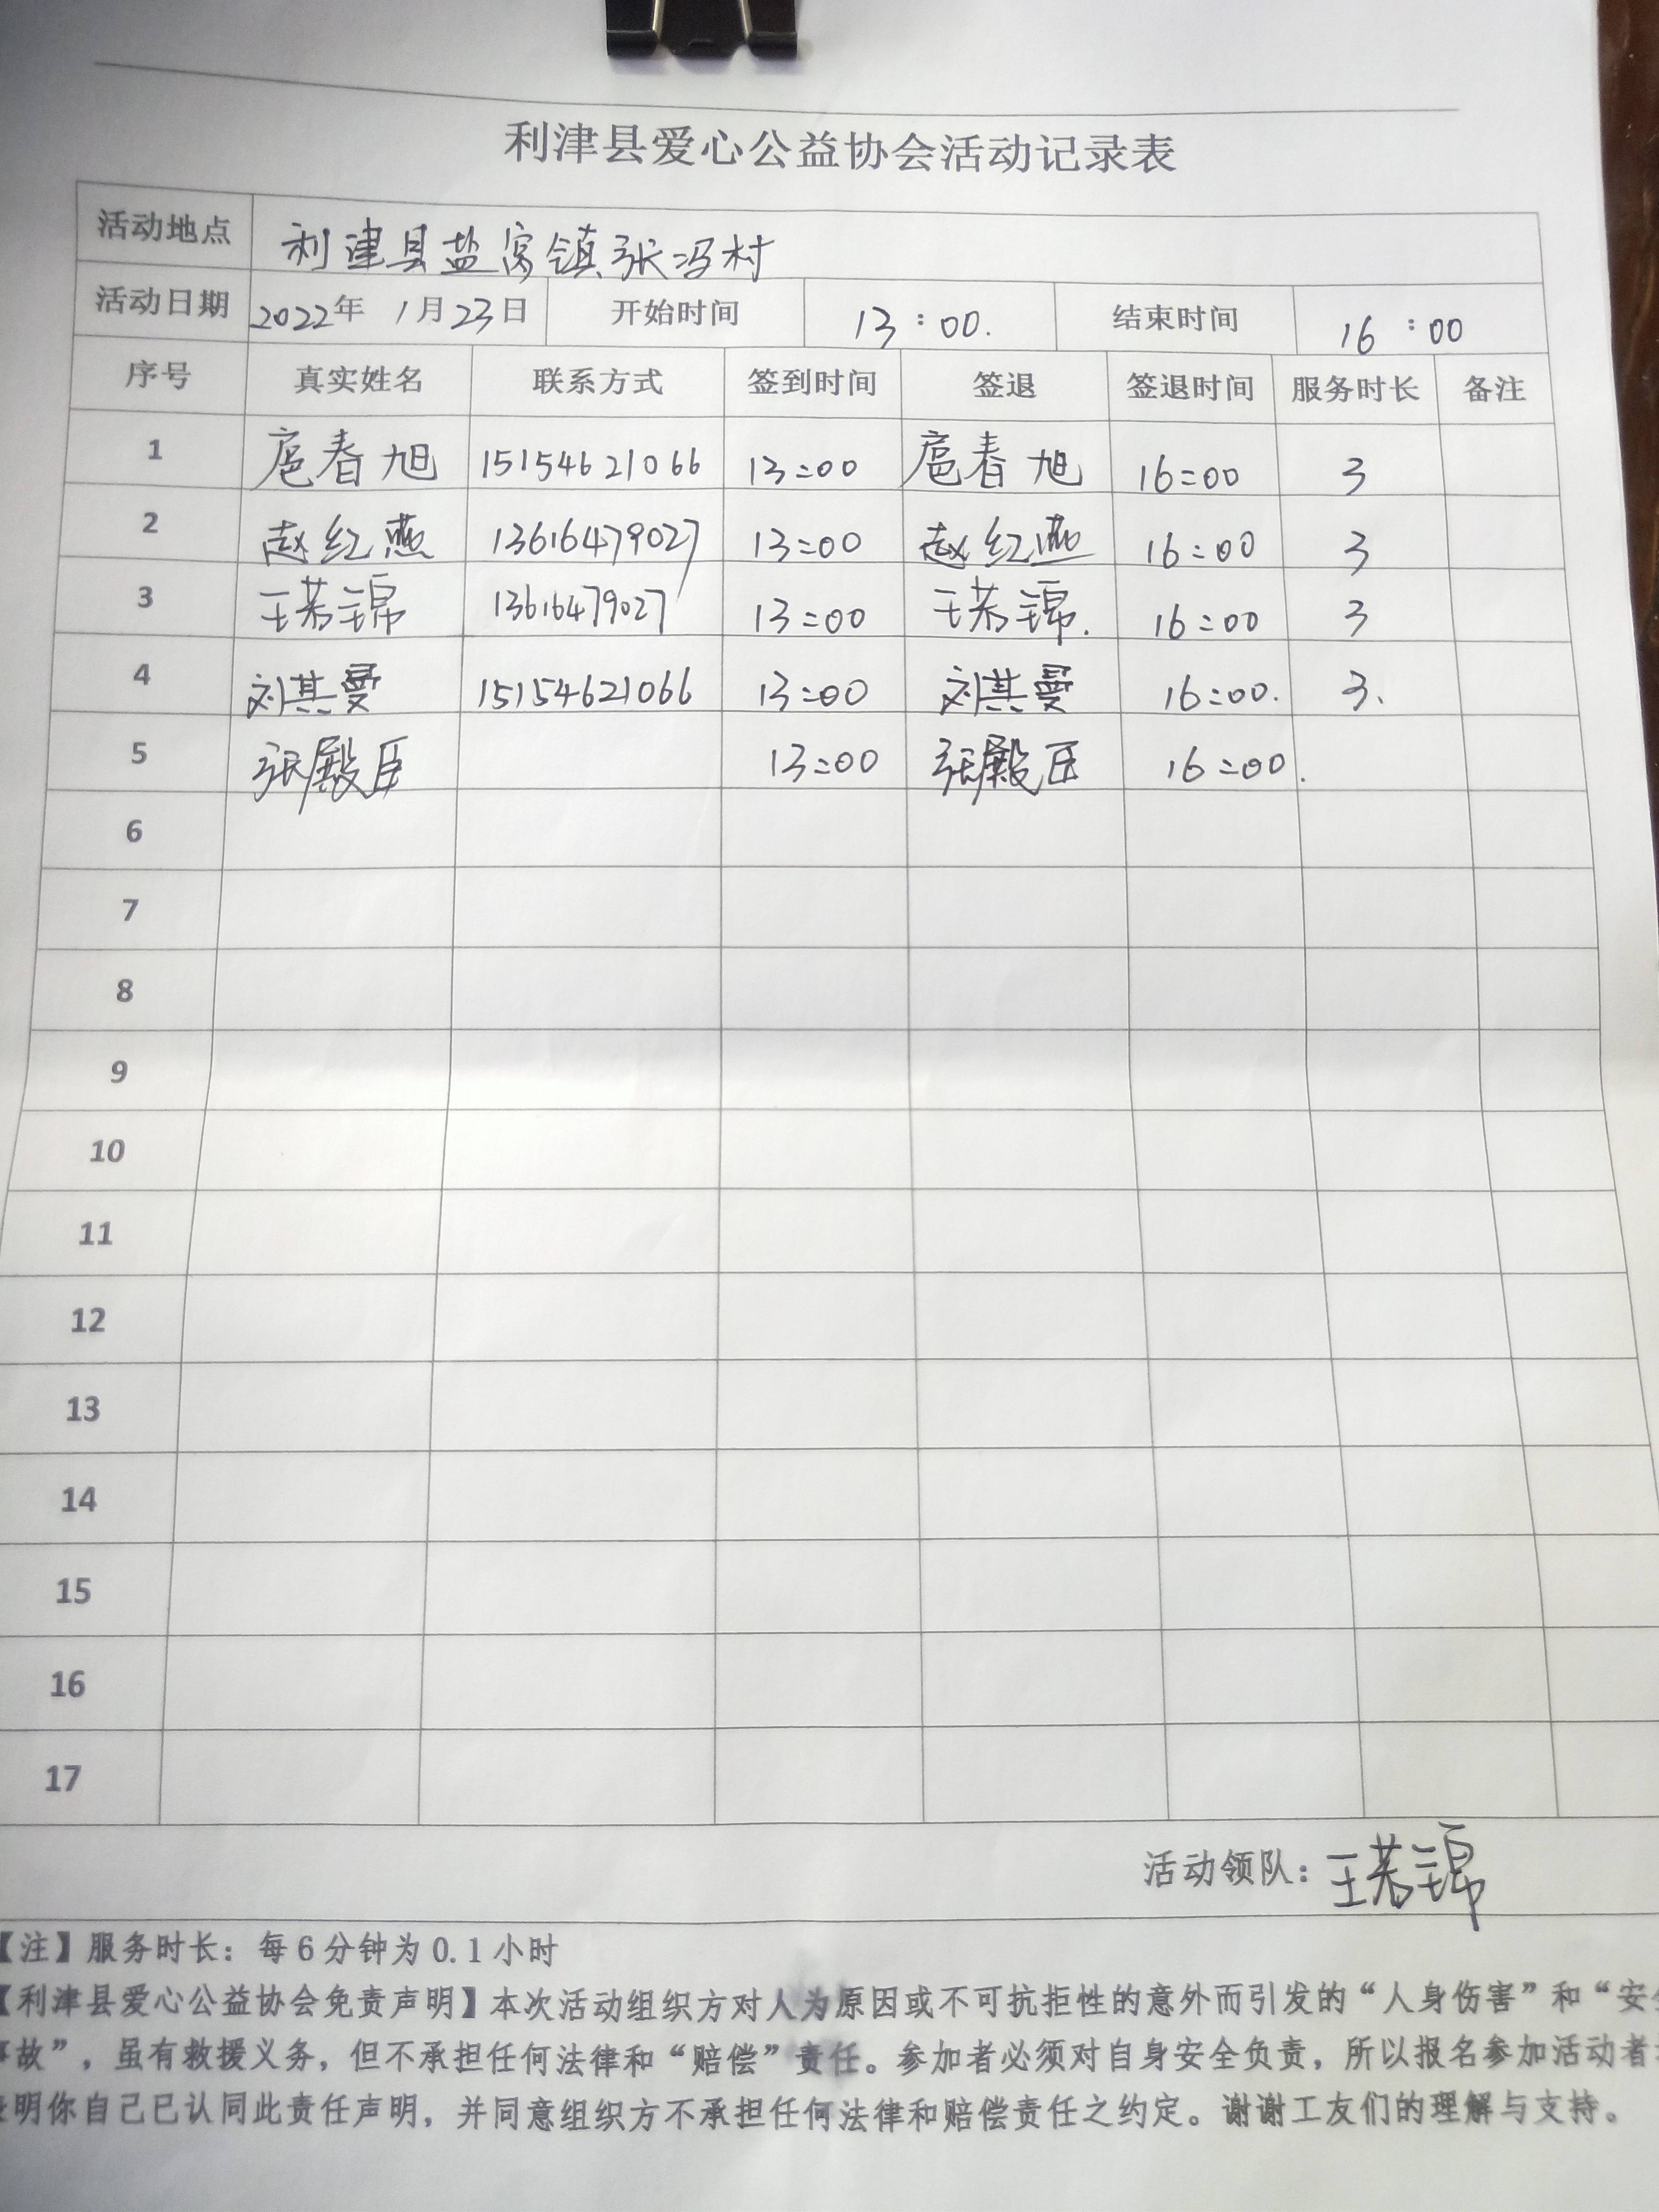 利津县爱心公益协会活动记录表
活动地点 利津县盐窝镇张冯村
活动日期 2022年 1月23日 开始时间 13:00. 结束时间 16:00
序号 真实姓名 联系方式 签到时间 签退 签退时间 服务时长 备注
1 扈春旭 15154621066 13:00 扈春旭 16:00 3
2 赵红燕 13616479027 13:00 赵红燕 16:00 3
3 王若锦 13616479027 13:00 王若锦. 16:00 3
4 刘其曼 15154621066 13:00 刘其曼 16:00. 3.
5 张殿臣 13:00 张殿臣 16:00.
6
7
8
9
10
11
12
13
14
15
16
17
活动领队：王若锦
【注】服务时长：每6分钟为0.1小时
【利津县爱心公益协会免责声明】本次活动组织方对人为原因或不可抗拒性的意外而引发的“人身伤害”和“安全
事故”，虽有救援义务，但不承担任何法律和“赔偿”责任。参加者必须对自身安全负责，所以报名参加活动者
明你自己已认同此责任声明，并同意组织方不承担任何法律和赔偿责任之约定。谢谢工友们的理解与支持。